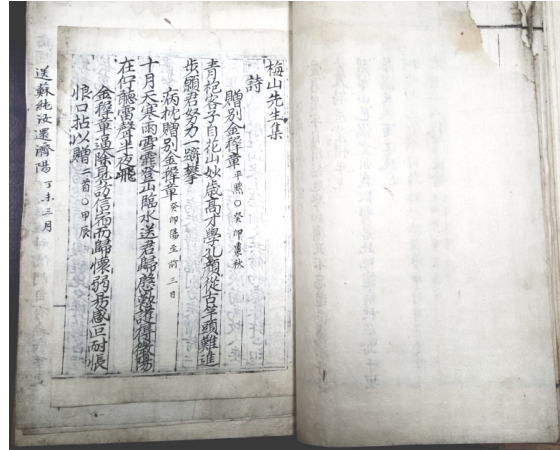 梅山先生集
詩
贈別金稺章 平黙○癸卯 秋
青袍客子自花山妙歲高才學孔顏從古竿頭難進
步願君努力一躋攀
病枕贈別金稺章 癸卯陽至前三日
十月天寒雨雪霏登山臨水送君歸慇懃講得微陽
在佇聽雷聲半夜飛
金稺章逼除見訪信宿而歸懷弱 感叵耐悵
恨口拈以贈 二首○甲辰
送蘇純汝還濟陽 丁未三月